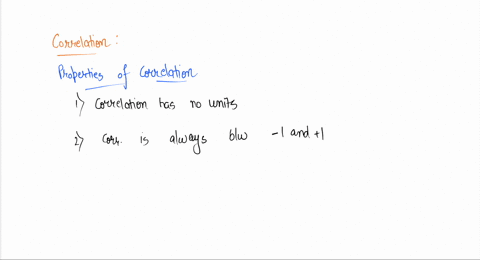 Correlation :
Properties of Correlation
1) Correlation has no units
2) Corr. is always b/w -1 and +1